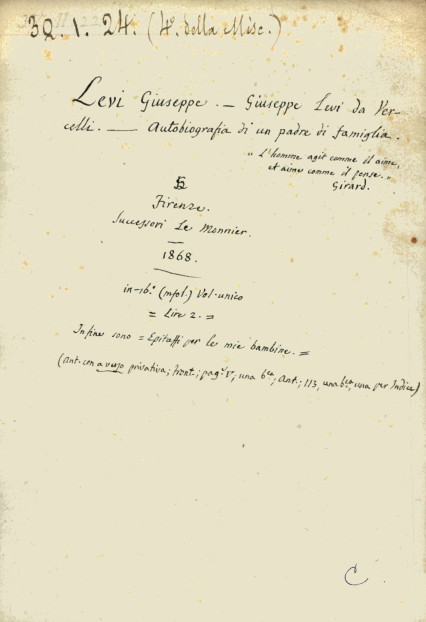 3Q. 1. 24. (4º. della Misc.)
Levi Giuseppe. — Giuseppe Levi da Ver-
celli. — Autobiografia di un padre di famiglia.
" L'homme agit comme il aime,
et aime comme il pense. „
Girard.
Firenze.
Successori Le Monnier.
1868.
in-16.º (mfol.) Vol. unico
= Lire 2. =
Infine sono = Epitaffi per le mie bambine. =
(Ant. con a verso privativa; front.; pag.e V, una b.ca; Ant.; 113, una b.ca, una per Indice)
C